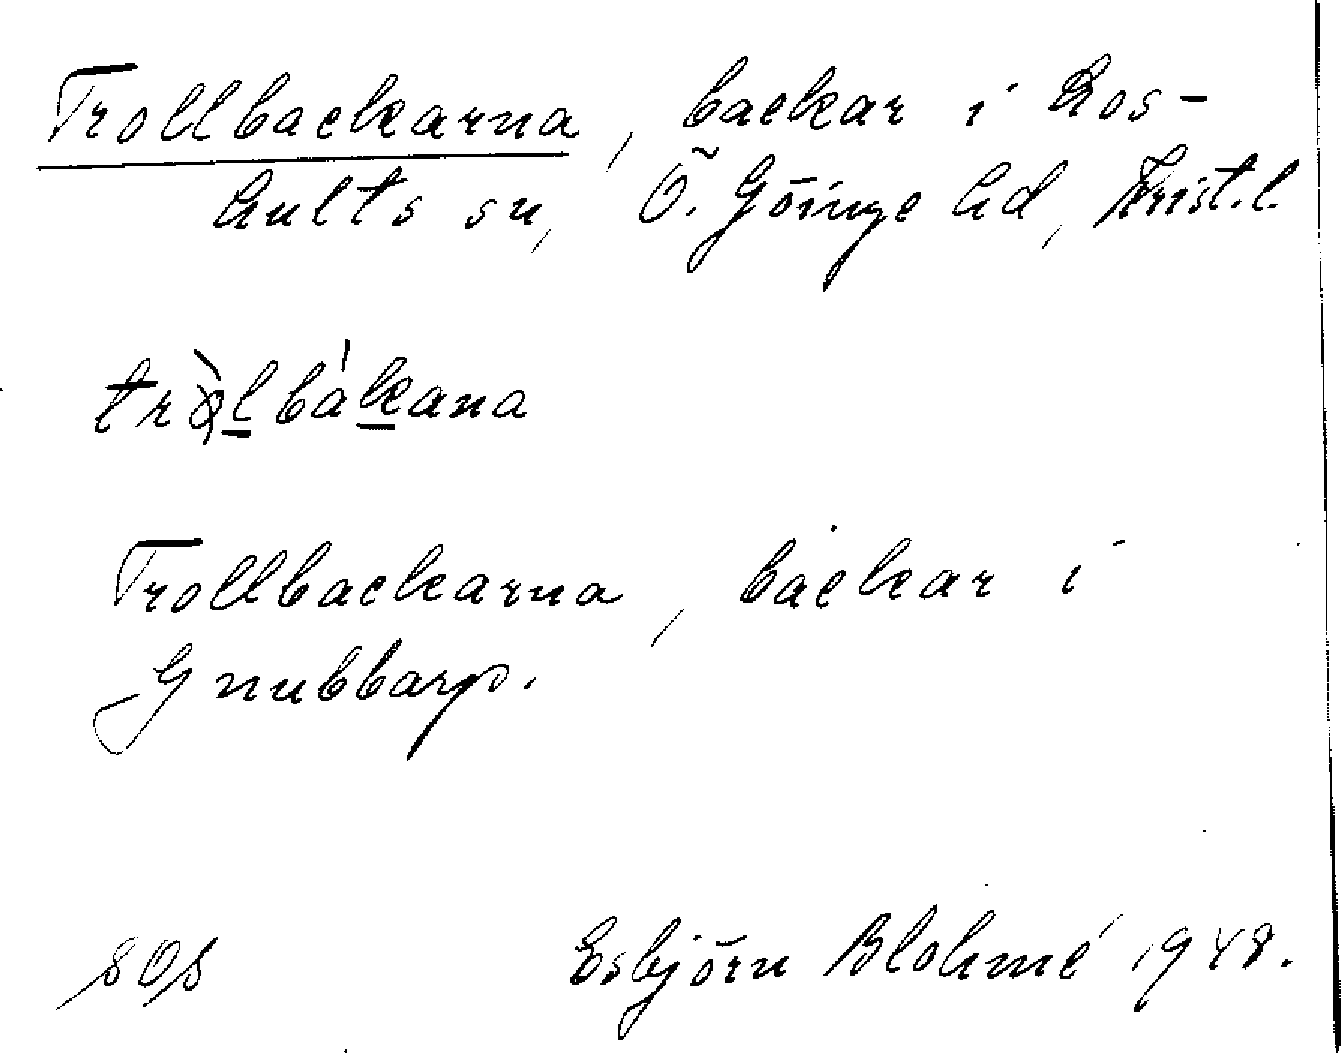 Trollbackarna, backar i Los-
hults sn, Ö. Göinge hd, Krist. l.
trὸl̲bák̲ana
Trollbackarna, backar i
Gnubbarp.
Esbjörn Blohmé 1948.